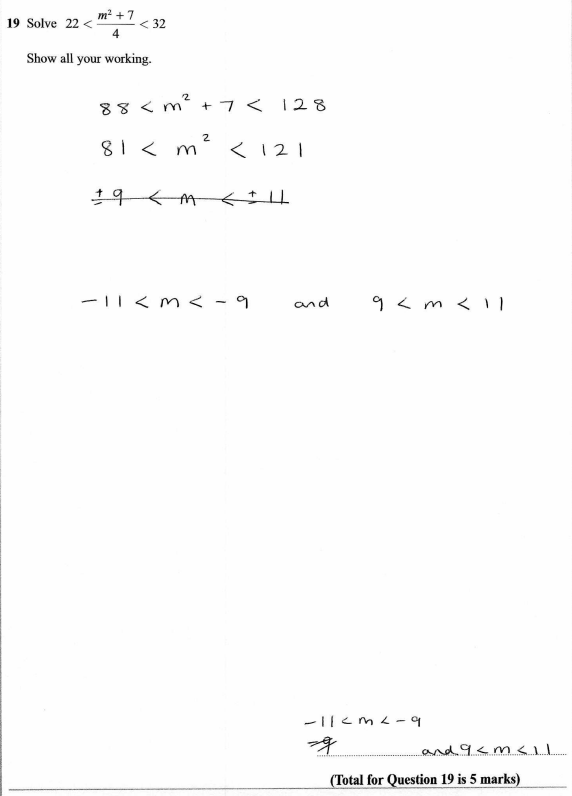 19 Solve 22 < (m² + 7)/4 < 32
Show all your working.
88 < m² + 7 < 128
81 < m² < 121
±9 < m < ±11
-11 < m < -9 and 9 < m < 11
-11 < m < -9
and 9 < m < 11
(Total for Question 19 is 5 marks)